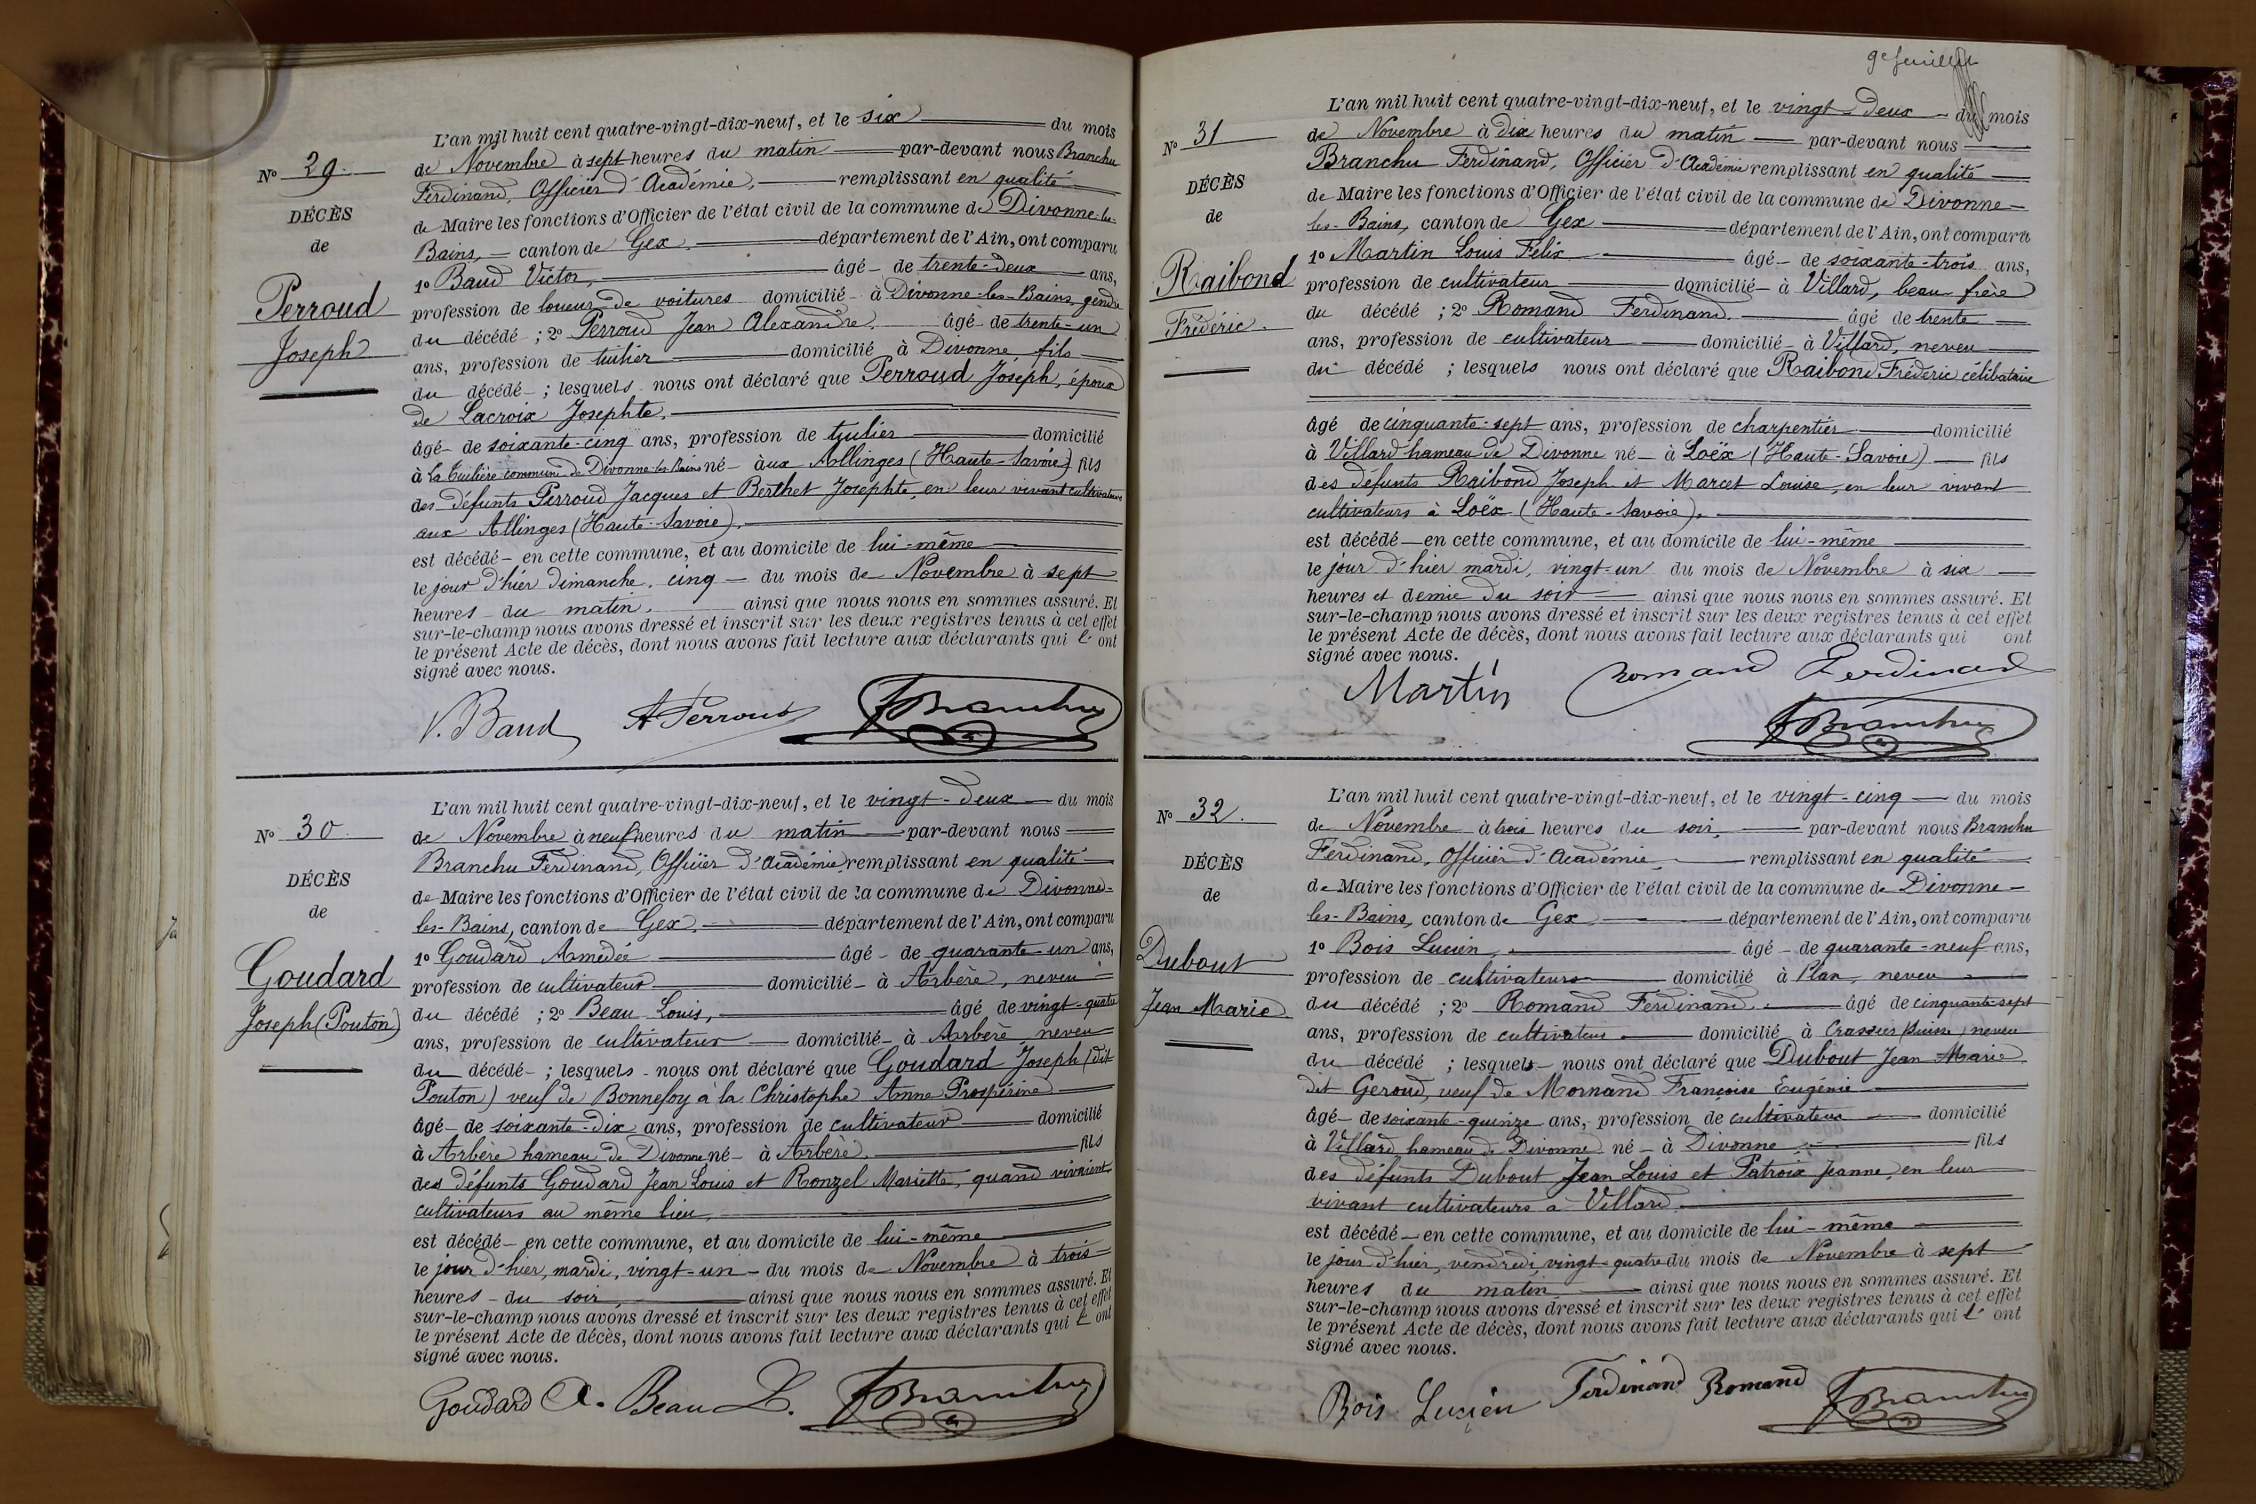 L'an mil huit cent quatre-vingt-dix-neuf, et le six du mois
No 29.
de Novembre à sept heures du matin par-devant nous Branchu
Ferdinand, Officier d'Académie, remplissant en qualité
DÉCÈS
de Maire les fonctions d'Officier de l'état civil de la commune de Divonne-les-
de
Bains, canton de Gex, département de l'Ain, ont comparu
1o Baud Victor, âgé de trente-deux ans,
Perroud
profession de loueur de voitures domicilié à Divonne-les-Bains, gendre
du décédé ; 2o Perroud Jean Alexandre, âgé de trente-un
Joseph
ans, profession de tuilier domicilié à Divonne, fils
du décédé ; lesquels nous ont déclaré que Perroud Joseph, époux
de Lacroix Josephte,
âgé de soixante-cinq ans, profession de tuilier domicilié
à La Tuilière commune de Divonne-les-Bains né aux Allinges (Haute-Savoie) fils
des défunts Perroud Jacques et Berthet Josephte, en leur vivant cultivateurs
aux Allinges (Haute-Savoie),
est décédé en cette commune, et au domicile de lui-même
le jour d'hier dimanche, cinq du mois de Novembre à sept
heures du matin, ainsi que nous nous en sommes assuré. Et
sur-le-champ nous avons dressé et inscrit sur les deux registres tenus à cet effet
le présent Acte de décès, dont nous avons fait lecture aux déclarants qui l' ont
signé avec nous.
V. Baud A Perroud FBranchu
L'an mil huit cent quatre-vingt-dix-neuf, et le vingt-deux du mois
No 30.
de Novembre à neuf heures du matin par-devant nous
Branchu Ferdinand, Officier d'Académie, remplissant en qualité
DÉCÈS
de Maire les fonctions d'Officier de l'état civil de la commune de Divonne-
de
les-Bains, canton de Gex, département de l'Ain, ont comparu
Goudard
1o Goudard Amédée âgé de quarante-un ans,
profession de cultivateur domicilié à Arbère, neveu
Joseph (Pouton)
du décédé ; 2o Beau Louis, âgé de vingt-quatre
ans, profession de cultivateur domicilié à Arbère, neveu
du décédé ; lesquels nous ont déclaré que Goudard Joseph (dit
Pouton) veuf de Bonnefoy à la Christophe Anne Prospérine
âgé de soixante-dix ans, profession de cultivateur domicilié
à Arbère hameau de Divonne né à Arbère, fils
des défunts Goudard Jean Louis et Ronzel Mariette, quand vivaient
cultivateurs au même lieu,
est décédé en cette commune, et au domicile de lui-même
le jour d'hier, mardi, vingt-un du mois de Novembre à trois
heures du soir, ainsi que nous nous en sommes assuré. Et
sur-le-champ nous avons dressé et inscrit sur les deux registres tenus à cet effet
le présent Acte de décès, dont nous avons fait lecture aux déclarants qui l' ont
signé avec nous.
Goudard A. Beau L. FBranchu
9e feuillet
L'an mil huit cent quatre-vingt-dix-neuf, et le vingt-deux du mois
No 31
de Novembre à dix heures du matin par-devant nous
Branchu Ferdinand, Officier d'Académie remplissant en qualité
DÉCÈS
de Maire les fonctions d'Officier de l'état civil de la commune de Divonne-
de
les-Bains, canton de Gex département de l'Ain, ont comparu
1o Martin Louis Félix âgé de soixante-trois ans,
Raibond
profession de cultivateur domicilié à Villard, beau-frère
Frédéric.
du décédé ; 2o Romand Ferdinand, âgé de trente
ans, profession de cultivateur domicilié à Villard, neveu
du décédé ; lesquels nous ont déclaré que Raibond Frédéric célibataire
âgé de cinquante-sept ans, profession de charpentier domicilié
à Villard hameau de Divonne né à Loëx (Haute-Savoie) fils
des défunts Raibond Joseph et Marcet Louise, en leur vivant
cultivateurs à Loëx (Haute-Savoie),
est décédé en cette commune, et au domicile de lui-même
le jour d'hier mardi, vingt-un du mois de Novembre à six
heures et demie du soir ainsi que nous nous en sommes assuré. Et
sur-le-champ nous avons dressé et inscrit sur les deux registres tenus à cet effet
le présent Acte de décès, dont nous avons fait lecture aux déclarants qui ont
signé avec nous.
Martin Romand Ferdinand
FBranchu
L'an mil huit cent quatre-vingt-dix-neuf, et le vingt-cinq du mois
No 32.
de Novembre à trois heures du soir, par-devant nous Branchu
Ferdinand, Officier d'Académie, remplissant en qualité
DÉCÈS
de Maire les fonctions d'Officier de l'état civil de la commune de Divonne-
de
les-Bains, canton de Gex département de l'Ain, ont comparu
1o Bois Lucien, âgé de quarante-neuf ans,
Dubout
profession de cultivateur domicilié à Plan, neveu
Jean Marie
du décédé ; 2o Romand Ferdinand, âgé de cinquante-sept
ans, profession de cultivateur domicilié à Crassier (Suisse) neveu
du décédé ; lesquels nous ont déclaré que Dubout Jean Marie
dit Geroud, veuf de Mornand Françoise Eugénie
âgé de soixante-quinze ans, profession de cultivateur domicilié
à Villard hameau de Divonne né à Divonne, fils
des défunts Dubout Jean Louis et Patroix Jeanne, en leur
vivant cultivateurs à Villard,
est décédé en cette commune, et au domicile de lui-même
le jour d'hier, vendredi, vingt-quatre du mois de Novembre à sept
heures du matin, ainsi que nous nous en sommes assuré. Et
sur-le-champ nous avons dressé et inscrit sur les deux registres tenus à cet effet
le présent Acte de décès, dont nous avons fait lecture aux déclarants qui l' ont
signé avec nous.
Bois Lucien Ferdinand Romand FBranchu